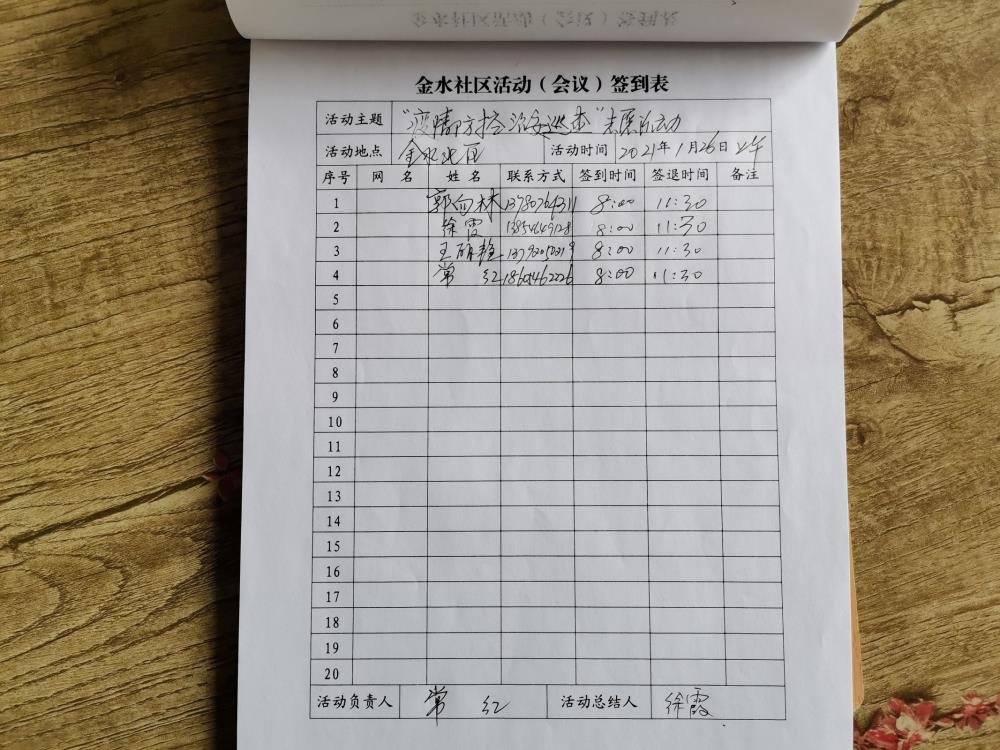 金水社区活动（会议）签到表
活动主题 “疫情防控治安巡查”志愿活动
活动地点 金水社区 活动时间 2021年1月26日上午
序号 网 名 姓 名 联系方式 签到时间 签退时间 备注
1 郭向林 13780764311 8:00 11:30
2 徐霞 8:00 11:30
3 8:00 11:30
4 常 红 8:00 11:30
5
6
7
8
9
10
11
12
13
14
15
16
17
18
19
20
活动负责人 常 红 活动总结人 徐霞